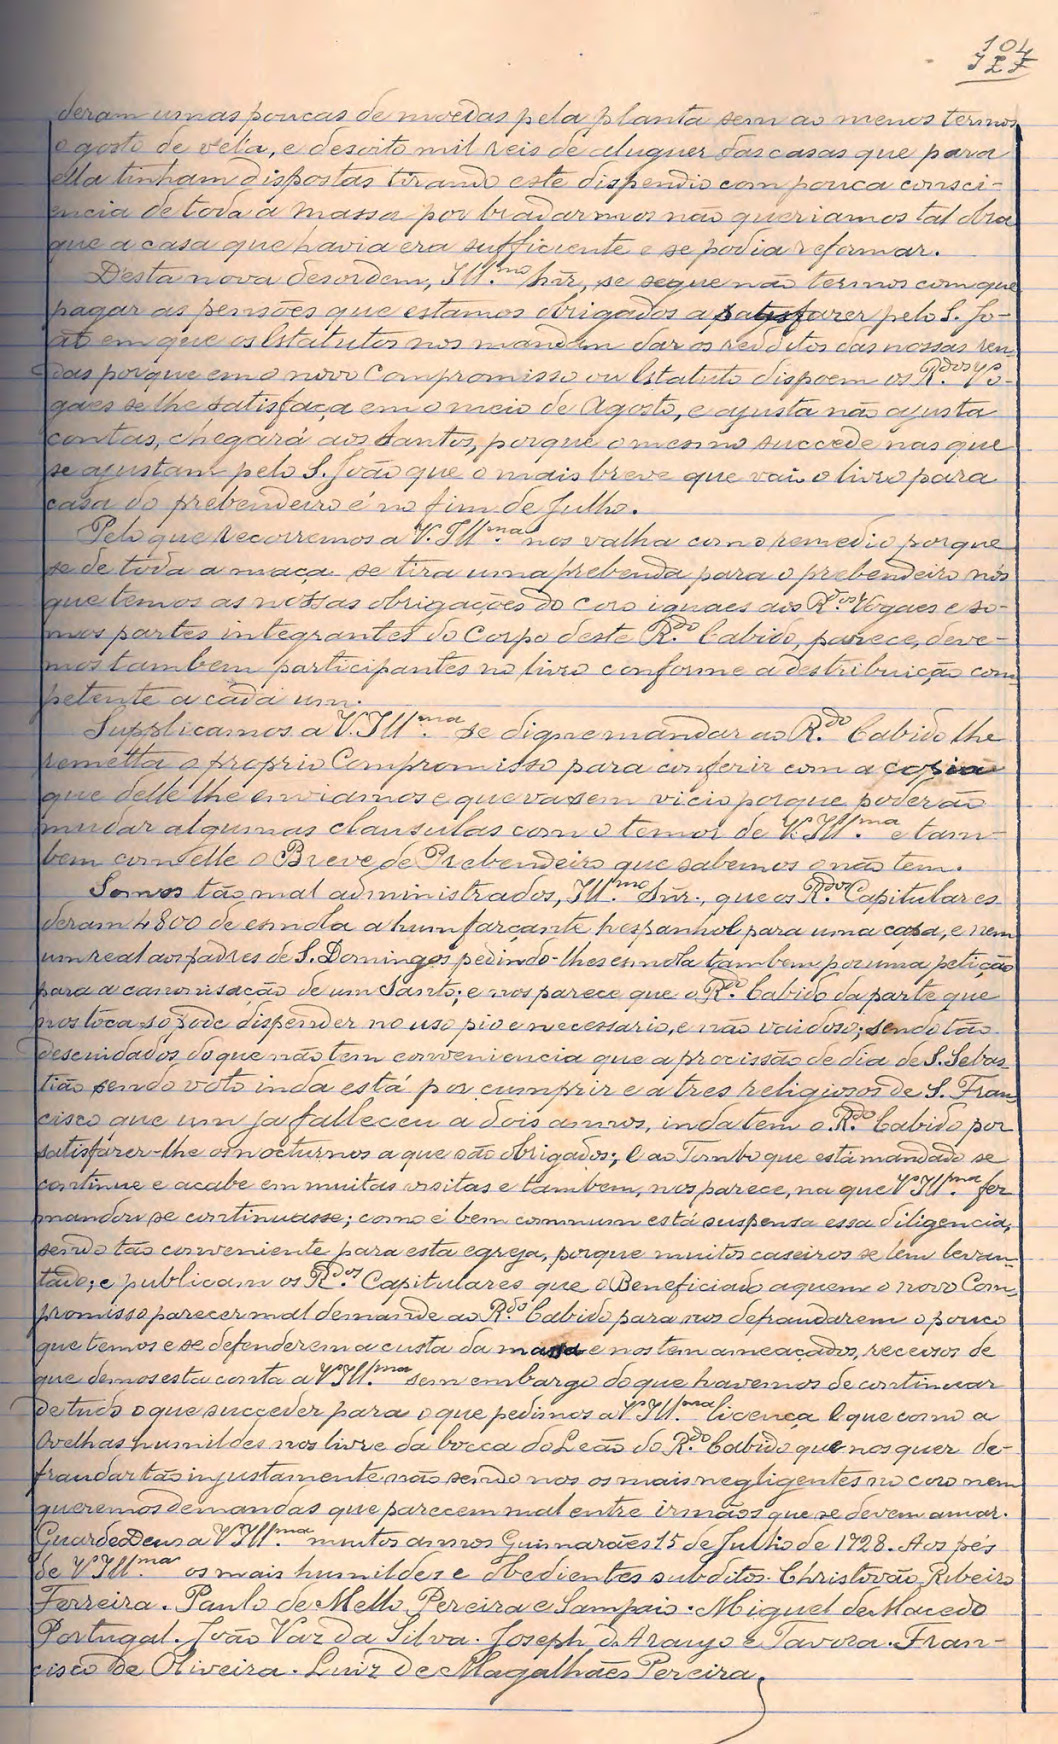 104
deram umas poucas de moedas pela planta sem ao menos termos
o gosto de vêl'a, e desoito mil reis de aluguer das casas que para
ella tinham dispostas tirando este dispendio com pouca consci-
encia de toda a massa por bradarmos não queriamos tal obra
que a casa que havia era sufficiente e se podia reformar.
Desta nova desordem, Ill.mo Snr., se segue não termos com que
pagar as pensões que estamos obrigados a satisfazer pelo S. Jo-
ão em que os Estatutos nos mandam dar os redditos das nossas ren-
das porque em o novo Compromisso ou Estatuto dispoem os R.dos Vo-
gaes se lhe satisfaça em o meio de Agosto, e ajusta não ajusta
contas, chegará aos Santos, porque o mesmo succede nas que
se ajustam pelo S. João que o mais breve que vai o livro para
casa do prebendeiro é no fim de Julho.
Pelo que recorremos a V. Ill.ma nos valha com o remedio porque
se de toda a maça se tira uma prebenda para o prebendeiro nós
que temos as nossas obrigações do Coro iguaes aos R.dos Vogaes e so-
mos partes integrantes do Corpo deste R.do Cabido, parece, deve-
mos tambem participantes no livro conforme a destribuição com-
petente a cada um.
Supplicamos a V. Ill.ma se digne mandar ao R.do Cabido lhe
remetta o proprio Compromisso para conferir com a copia
que delle lhe enviamos e que va sem vicio porque poderão
mudar algumas clausulas com o temor de V. Ill.ma e tam-
bem com elle o Breve de Prebendeiro que sabemos o não tem.
Somos tão mal administrados, Ill.mo Snr., que os R.dos Capitulares
deram 4800 de esmola a hum farçante hespanhol para uma capa, e nem
um real aos padres de S. Domingos pedindo-lhes esmola tambem por uma petição
para a canonisação de um Santo; e nos parece que o R.do Cabido da parte que
nos tóca só póde dispender no uso pio e necessario, e não vaidoso; sendo tão
descuidados do que não tem conveniencia que a procissão de dia de S. Sebas-
tião sendo voto inda está por cumprir e a tres religiosos de S. Fran-
cisco que um ja falleceu a dois annos, inda tem o R.do Cabido por
satisfazer-lhe os nocturnos a que são obrigados; E ao Tombo que está mandado se
continue e acabe em muitas visitas e tambem, nos parece, na que V. Ill.ma for
mandou se continuasse; como é bem commum está suspensa essa diligencia,
sendo tão conveniente para esta egreja, porque muitos caseiros se tem levan-
tado; e publicam os R.dos Capitulares que o Beneficiado a quem o novo Com-
promisso parecer mal demande ao R.do Cabido para nos defraudarem o pouco
que temos e se defenderem a custa da massa e nos tem ameaçados, receosos de
que demos esta conta a V. Ill.ma sem embargo do que havemos de continuar
de tudo o que succeder para o que pedimos a V. Ill.ma licença E que como a
Ovelhas humildes nos livre da bocca do Leão do R.do Cabido que nos quer de-
fraudar tão injustamente não sendo nos os mais negligentes no coro nem
queremos demandas que parecem mal entre irmãos que se devem amar.
Guarde Deus a V. Ill.ma muitos annos Guimarães 15 de Julho de 1728. Aos pés
de V. Ill.ma os mais humildes e obedientes subditos. Christovão Ribeiro
Ferreira. Paulo de Mello Pereira e Sampaio. Miguel de Macedo
Portugal. João Vaz da Silva. Joseph d'Araujo e Tavora. Fran-
cisco de Oliveira. Luiz de Magalhães Pereira.